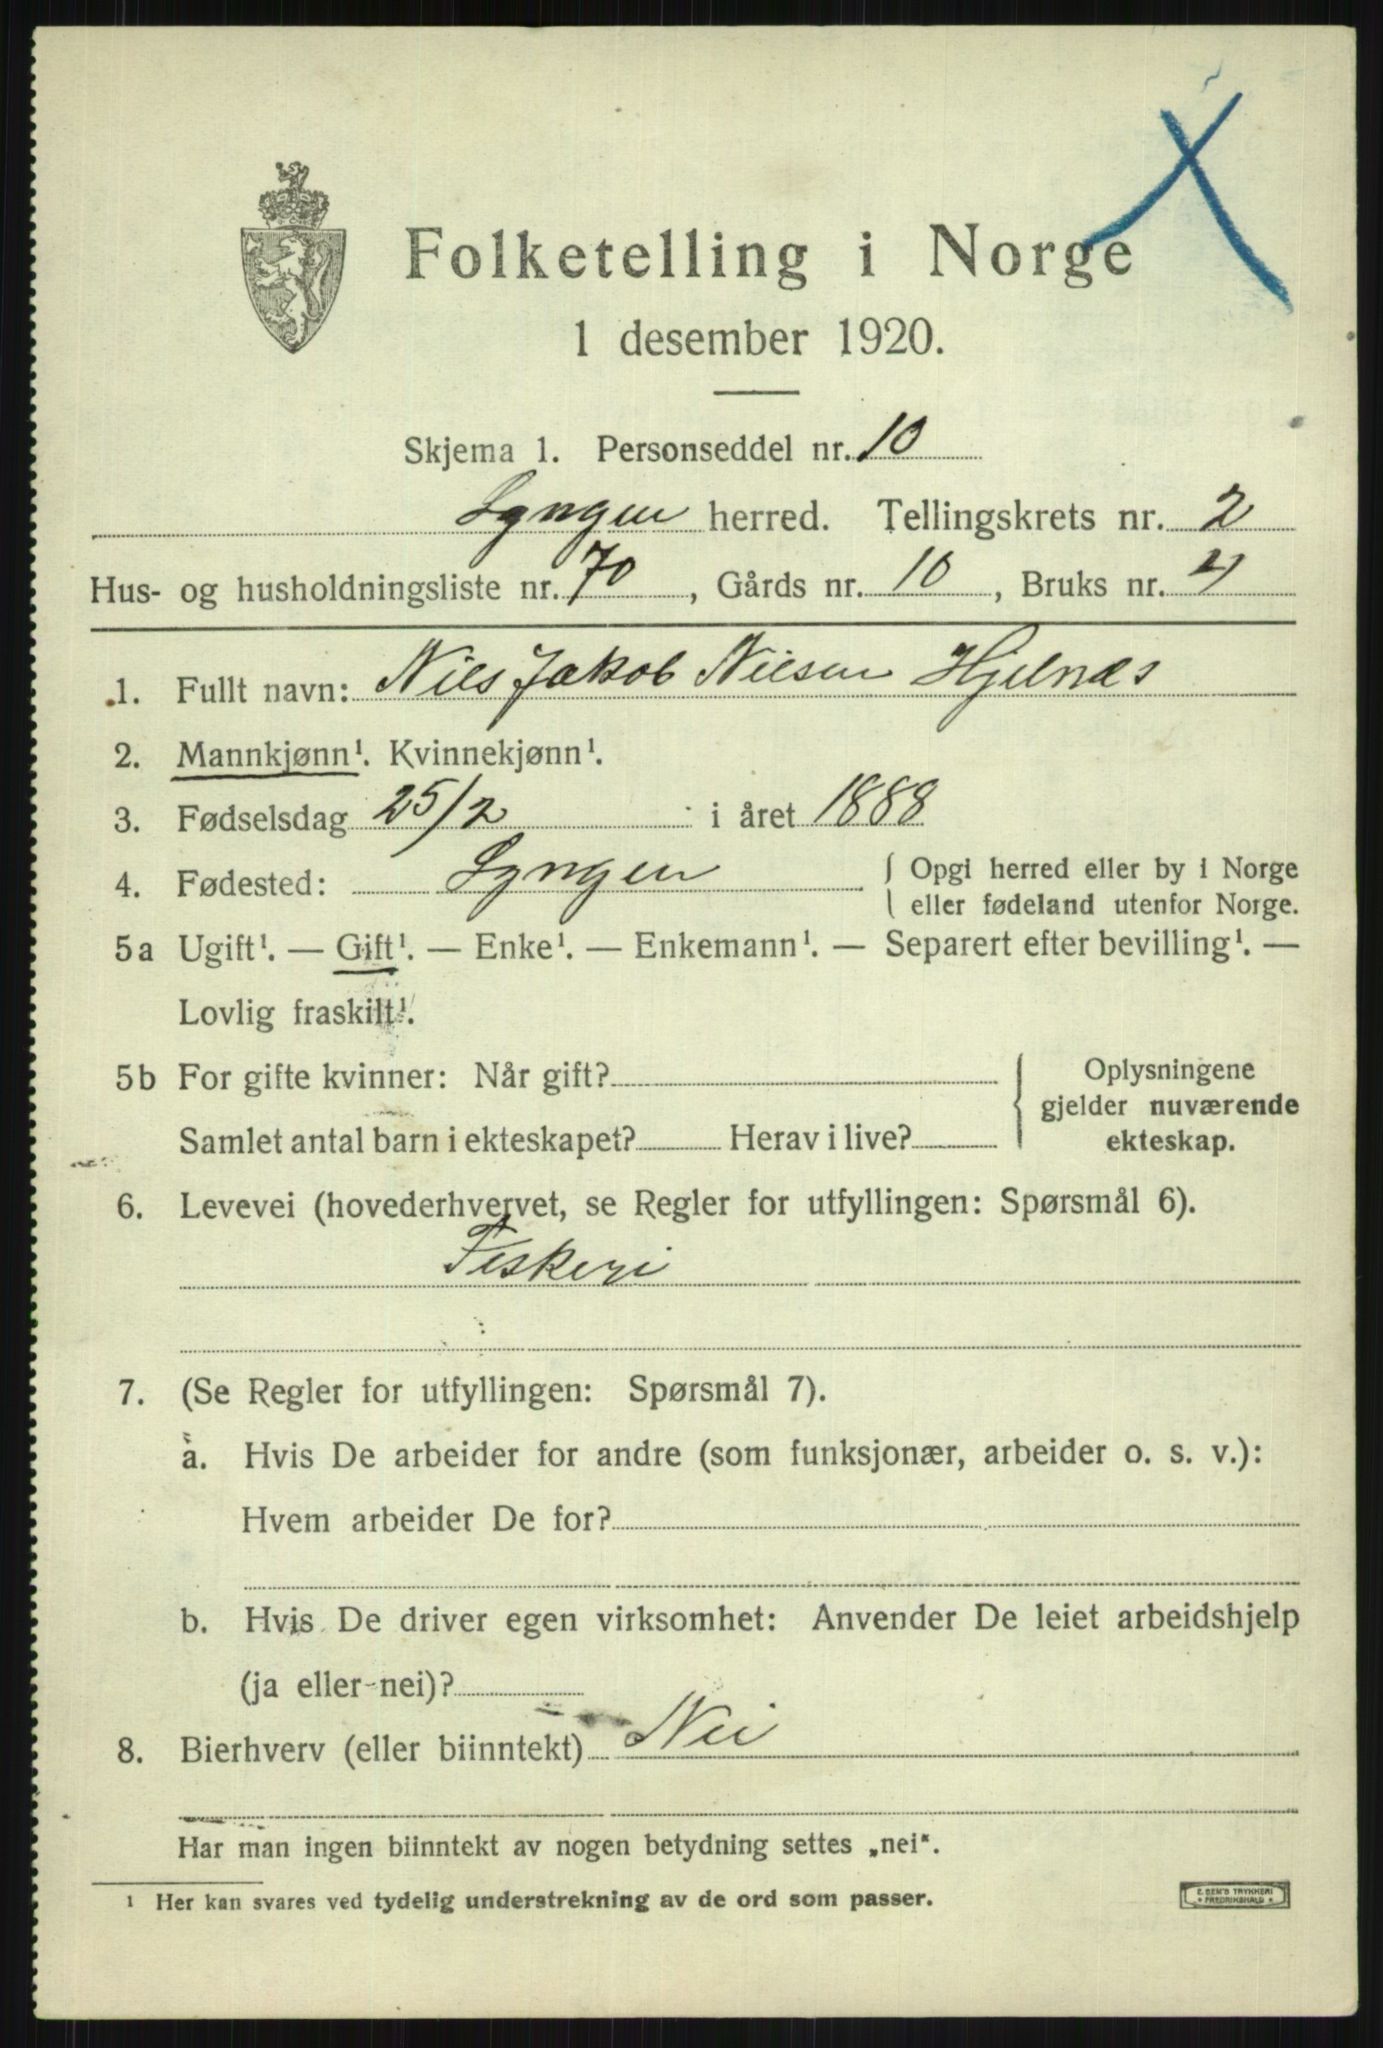 Folketelling i Norge
1 desember 1920.
Skjema 1. Personseddel nr. 10
Lyngen herred. Tellingskrets nr. 2
Hus- og husholdningsliste nr. 70, Gårds nr. 10, Bruks nr. 4
1. Fullt navn: Nils Jakob Nilsen Hjelnæs
2. Mannkjønn¹. Kvinnekjønn¹.
3. Fødselsdag 25/2 i året 1888
4. Fødested: Lyngen { Opgi herred eller by i Norge
eller fødeland utenfor Norge.
5a Ugift¹. — Gift¹. — Enke¹. — Enkemann¹. — Separert efter bevilling¹. —
Lovlig fraskilt¹.
5b For gifte kvinner: Når gift?
Samlet antal barn i ekteskapet? Herav i live?
{ Oplysningene
gjelder nuværende
ekteskap.
6. Levevei (hovederhvervet, se Regler for utfyllingen: Spørsmål 6).
Fiskeri
7. (Se Regler for utfyllingen: Spørsmål 7).
a. Hvis De arbeider for andre (som funksjonær, arbeider o. s. v.):
Hvem arbeider De for?
b. Hvis De driver egen virksomhet: Anvender De leiet arbeidshjelp
(ja eller nei)?
8. Bierhverv (eller biinntekt) Nei
Har man ingen biinntekt av nogen betydning settes „nei“.
¹ Her kan svares ved tydelig understrekning av de ord som passer.
E. SEM'S TRYKKERI
* FREDRIKSHALD *